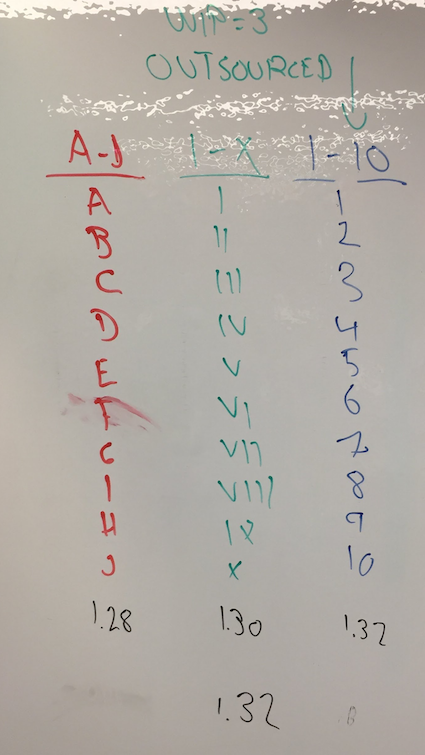 WIP=3
OUTSOURCED
A-J I-X 1-10
A I 1
B II 2
C III 3
D IV 4
E V 5
F VI 6
G VII 7
I VIII 8
H IX 9
J X 10
1.28 1.30 1.32
1.32